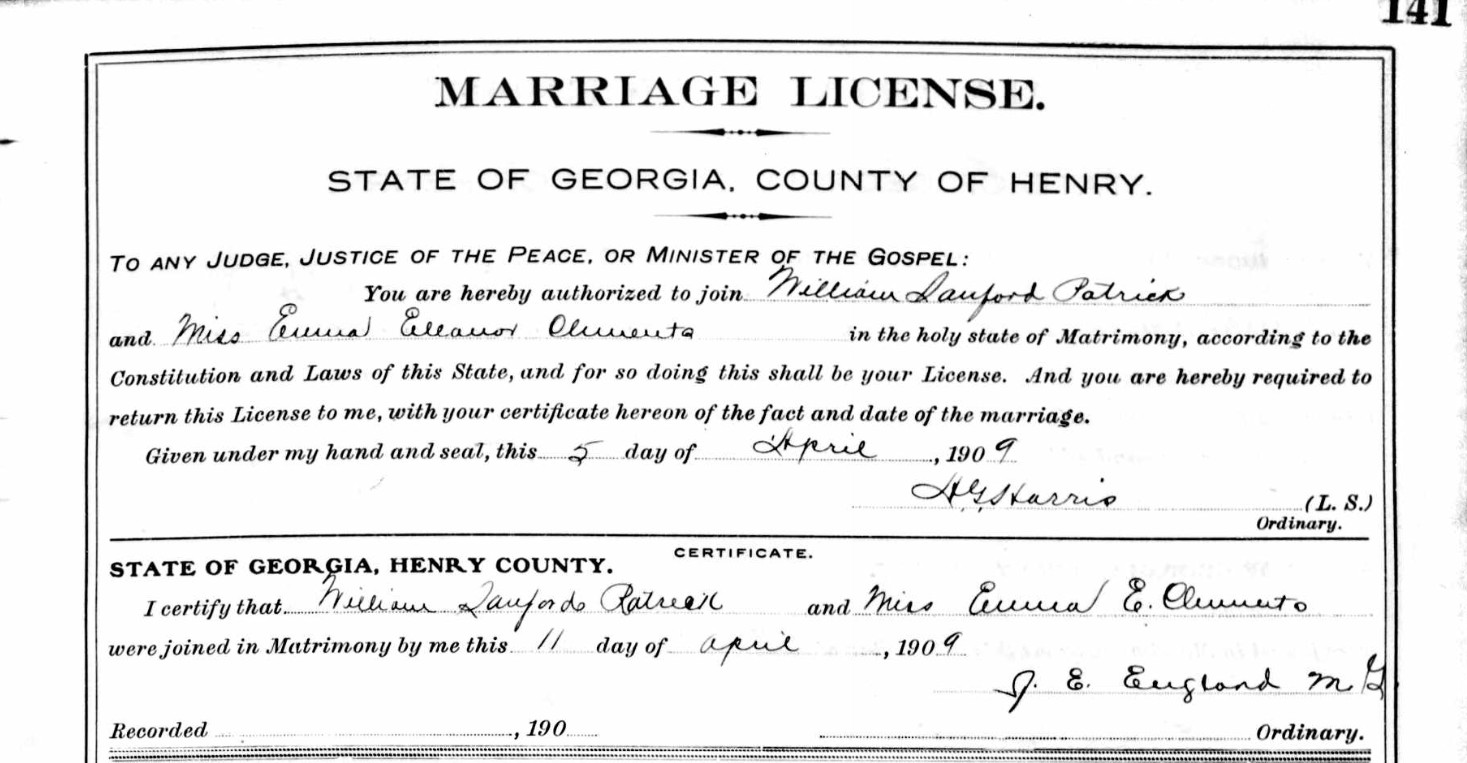 141
MARRIAGE LICENSE.
STATE OF GEORGIA, COUNTY OF HENRY.
TO ANY JUDGE, JUSTICE OF THE PEACE, OR MINISTER OF THE GOSPEL:
You are hereby authorized to join William Sanford Patrick
and Miss Emma Eleanor Clements in the holy state of Matrimony, according to the
Constitution and Laws of this State, and for so doing this shall be your License. And you are hereby required to
return this License to me, with your certificate hereon of the fact and date of the marriage.
Given under my hand and seal, this 5 day of April, 1909
A.G. Harris (L. S.)
Ordinary.
CERTIFICATE.
STATE OF GEORGIA, HENRY COUNTY.
I certify that William Sanford Patrick and Miss Emma E. Clements
were joined in Matrimony by me this 11 day of april, 1909
J. E. England M G
Recorded , 190 Ordinary.